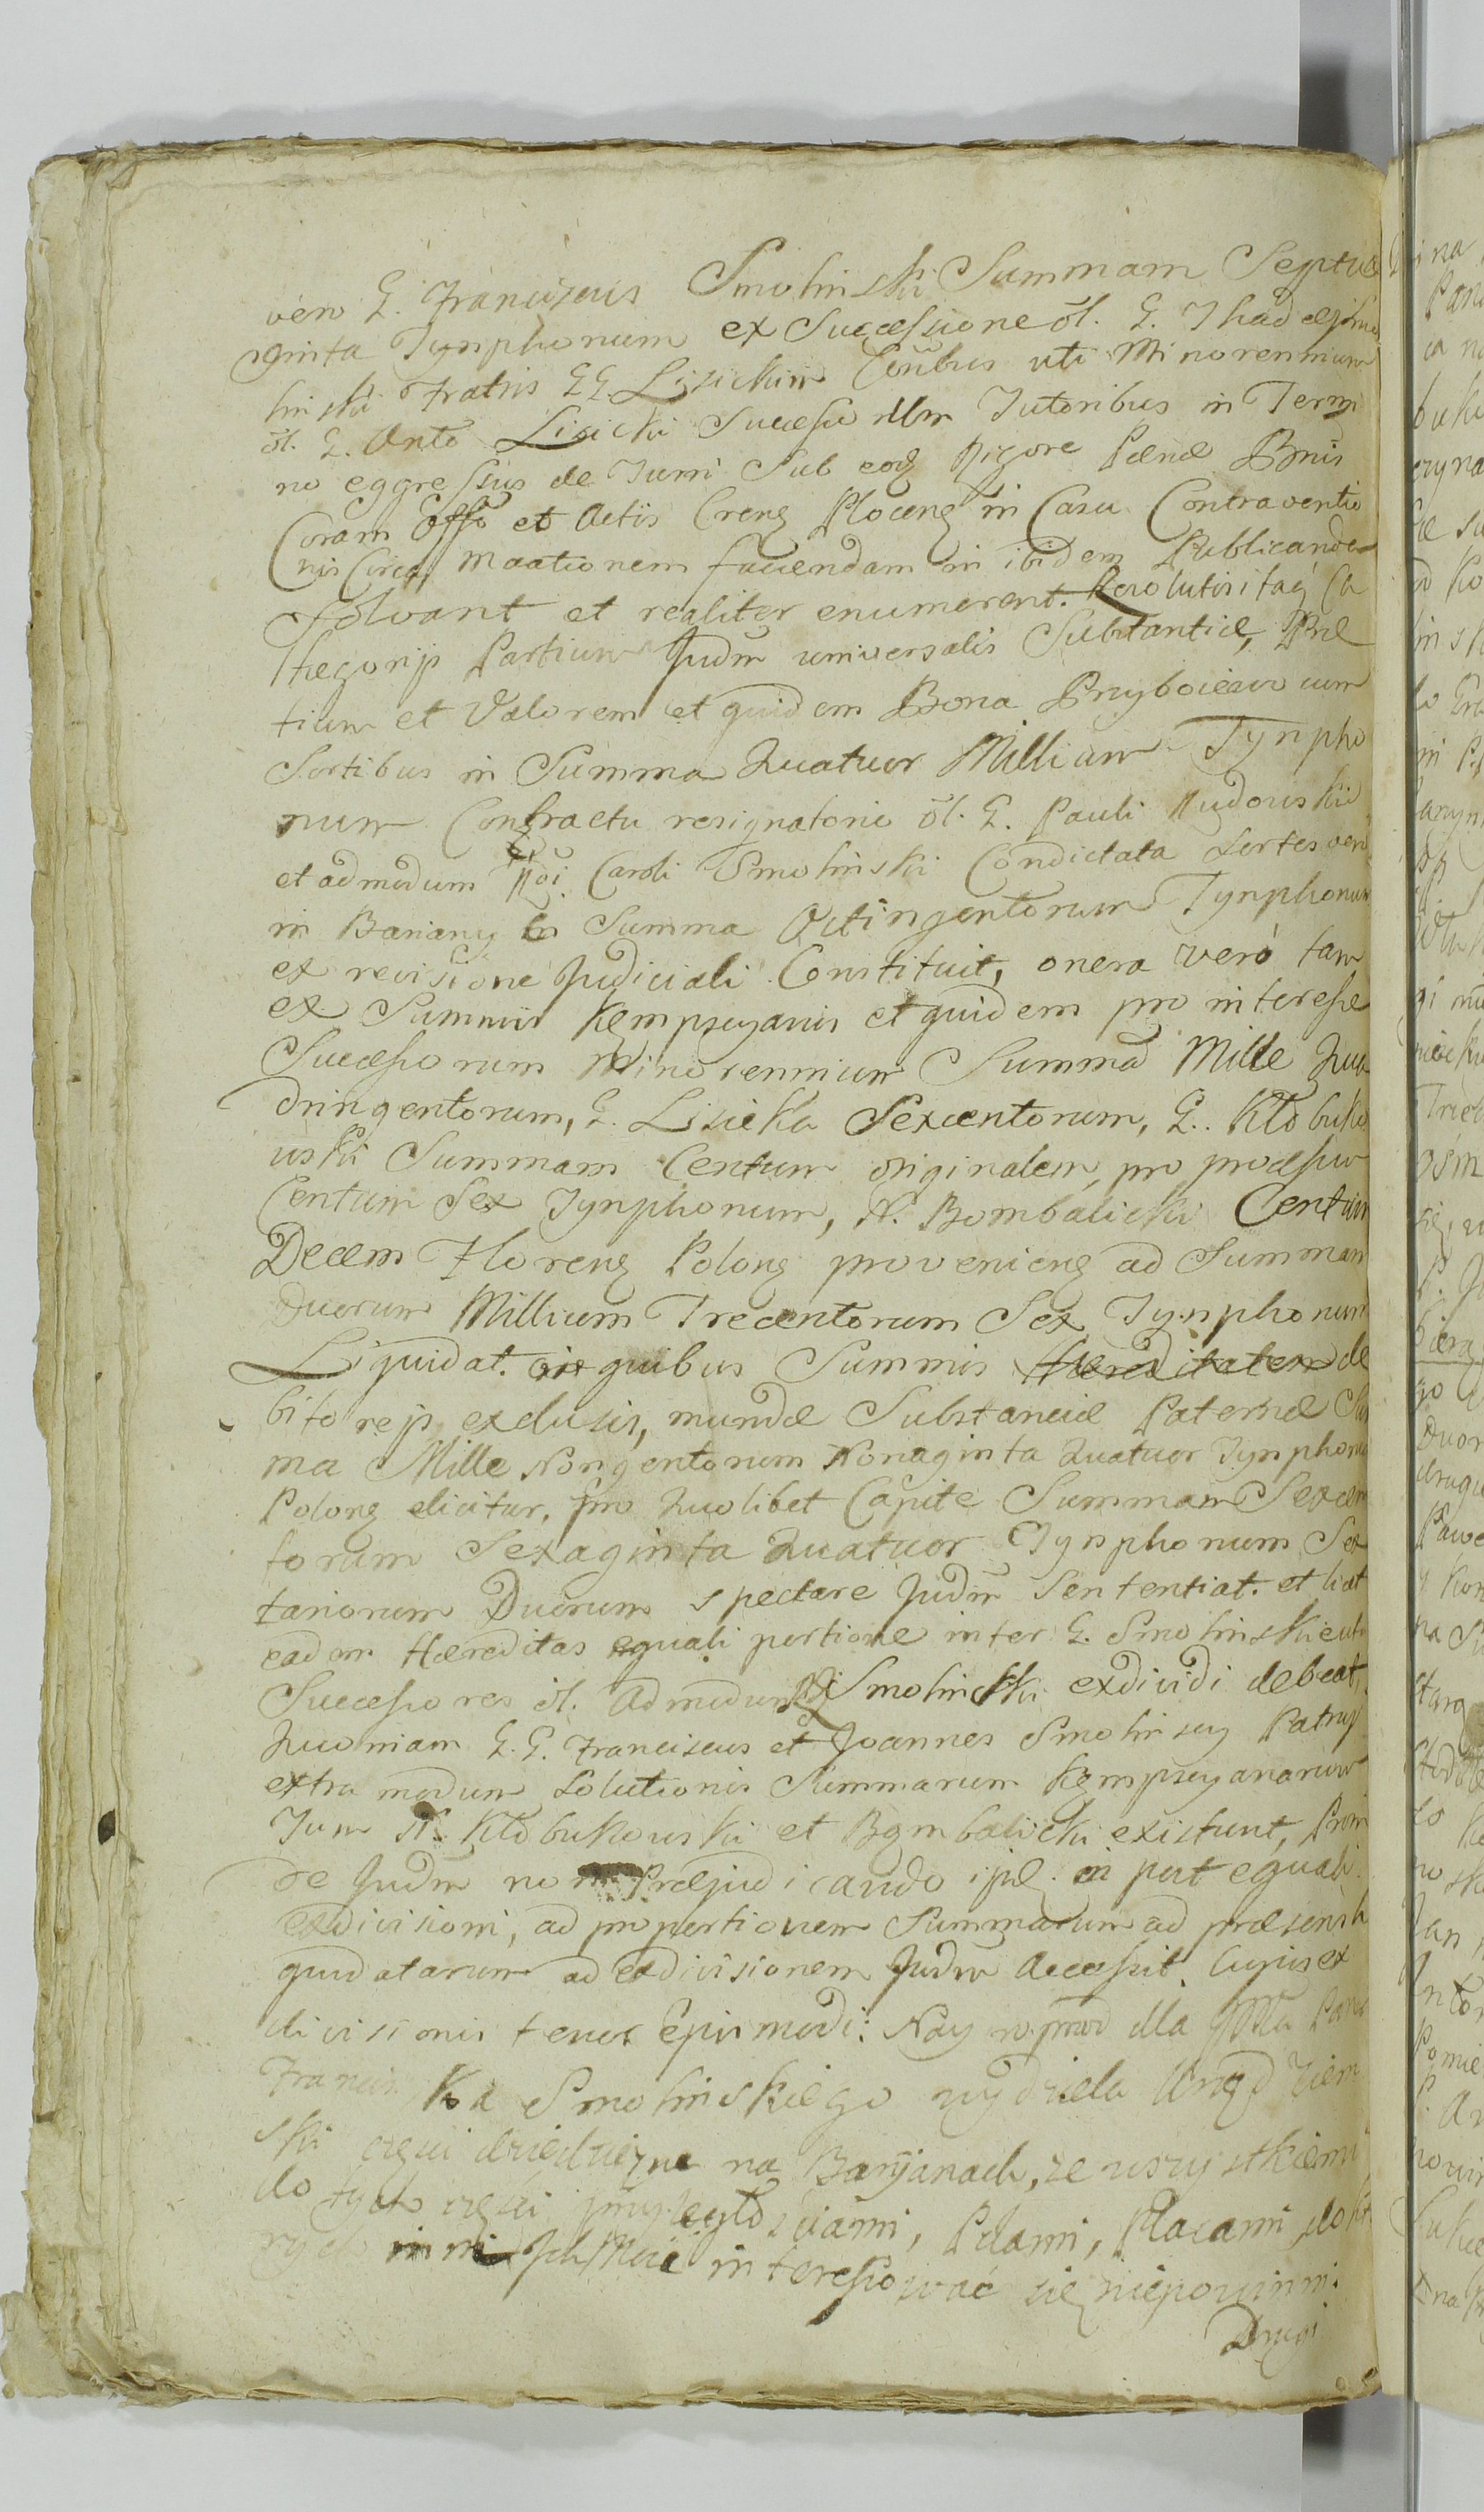 vero G. Franciscus Smolinski Summam Septua
ginta Tynphonum ex Successione ol. G. Thadei Smo
linski Fratris GG. Lisickim Coñbus uti Minorennium
ol. G. Anto Lisicki Successorum Tutoribus in Termi
no eggressus de Turri Sub eoq Rigore Pænæ Bnis
Coram Offo et Actis Crenz Plocenz in Casu Contraventio
nis Circa mationem faciendam in ibidem Publicande
Solvant et realiter enumerent. Revolutis itaq Ca
thegorijs Partium Judm universalis Substantiæ, Præ
tium et Valorem et quidem Bona Przyboiewo cum
Sortibus in Summa Quatuor Millium Tynpho
num Contractu resignatorio ol. G. Pauli Rudowskii
et admodum Rdi Caroli Smolinski Condictata Sortes vero
in Bariany in Summa Octingentorum Tynphonum
ex revisione Judiciali Constituit, onera vero tam
ex Summis Kempczyanis et quidem pro interesse
Successorum Minorennium Summa Mille Qua
dringentorum, G. Lisicka Sexcentorum, G. Kłobuko
wski Summam Centum originalem, pro procesu
Centum Sex Tynphonum, N. Bombalicki Centum
Decem Florenz Polonz provenienz ad Summam
Duorum Millium Trecentorum Sex Tynphonum
Liquidat. ex quibus Summis Hæreditatem de
bitorejs exclusis, mundæ Substanciæ Paternæ Sum
ma Mille Nongentorum Nonaginta Quatuor Tynphonu
Polonz elicitur, pro Quolibet Capite Summam Sexcen
torum Sexaginta Quatuor Tynphonum Sex
tariorum Duorum spectare Judm Sententiat. et licet
eadem Hæreditas equali portione inter G. Smolinski et
Successores ol. Admodum Rdi Smolinski exdividi debeat,
Quoniam G.G. Franciscus et Joannes Smolinscy Patruj
extra modum Solutionis Summarum Kempczyanarum
Tum N. Kłobukowski et Bombalicki existunt, Proin
de Judm non Præjudicando ipsæ in post equali
exdivisioni, ad proportionem Summarum ad præsens li
quidatarum ad exdivisionem Judm Accessit. Cujus ex
divisionis tenor Ejusmodi: Nay w przod dla JPana
Francis ka Smolinskiego wydziela Urząd Ziem
ski częsci dziedziczne na Baryanach, ze wszystkiemi
do tych częsci przyległosciami, Polami, Placami, do któ
rych inni interessować się niepowinni.
Drugi